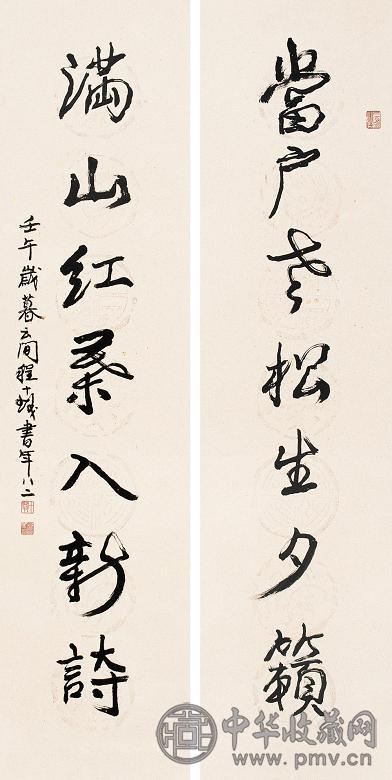 當户老松生夕籟
滿山紅葉入新詩
壬午歲暮云間程十髮書年八二
中华收藏网
www.pmv.cn